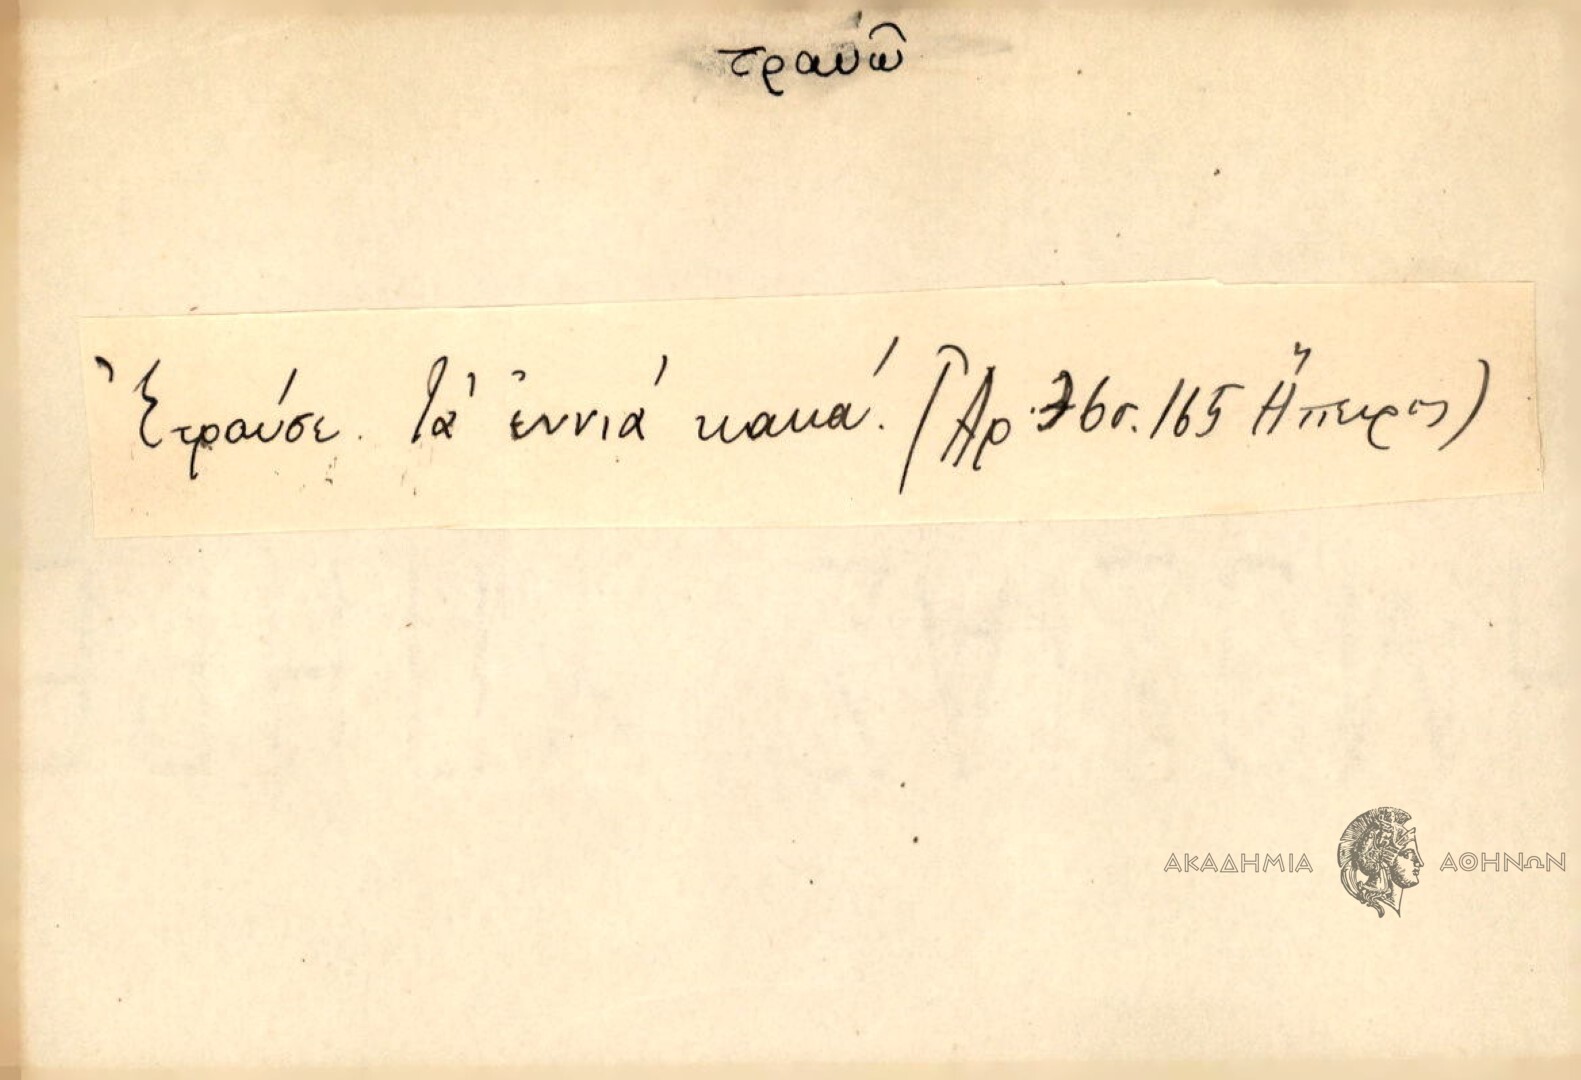 τραυῶ
Ἐτραύσε. Τά ἐννιά κακά. (Ἀρ. 76 σ. 165 Ἤπειρος)
ΑΚΑΔΗΜΙΑ ΑΘΗΝΩΝ